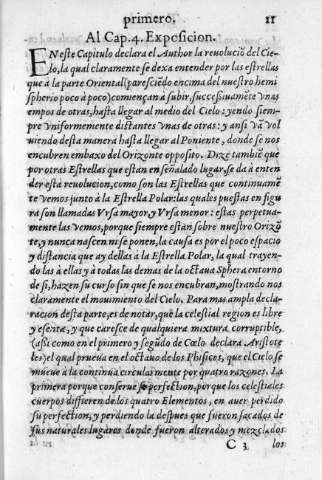 primero. 11
Al Cap. 4. Exposicion.
EN este Capitulo declara el Author la reuoluciõ del Cie-
lo, la qual claramente se dexa entender por las estrellas
que à la parte Oriental (paresciẽdo encima del nuestro hemi
spherio poco a poco) començan à subir, successiuamẽte vnas
empos de otras, hasta llegar al medio del Cielo: yendo siem-
pre vniformemente distantes vnas de otras: y ansi vã vol
uiendo desta manera hasta llegar al Poniente, donde se nos
encubren embaxo del Orizonte opposito. Dizẽ tambiẽ que
por otras Estrellas que estan en señalado lugar, se da à enten
der esta reuolucion, como son las Estrellas que continuamẽ
te vemos junto à la Estrella Polar: las quales puestas en figu
ra son llamadas Vrsa mayor, y Vrsa menor: estas perpetua-
mente las vemos, porque siempre estàn sobre nuestro Orizõ
te, y nunca nascen ni se ponen, la causa es por el poco espacio
y distancia que ay dellas à la Estrella Polar, la qual trayen-
do las à ellas y à todas las demas de la octaua Sphera entorno
de si, hazen su curso sin que se nos encubran, mostrando nos
claramente el mouimiento del Cielo. Para mas ampla decla-
racion desta parte, es de notar, què la celestial region es libre
y esenta, y que caresce de qualquiera mixtura corruptible,
(assi como en el primero y segũdo de Cœlo declara Aristote
les) el qual prueua en el octauo de los Phisicos, que el Cielo se
mueue à la continua circularmente por quatro razones. La
primera porque conserue se perfection, porque los celestiales
cuerpos diffieren de los quatro Elementos, en auer perdido
su perfection, y perdiendo la despues que fueron sacados de
sus naturales lugares donde fueron alterados y mezclados
C 3 los